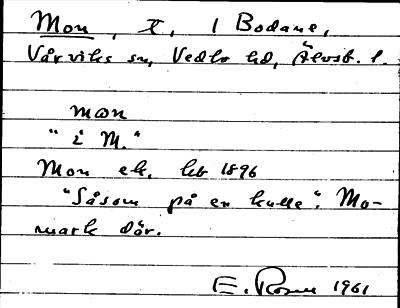 Mon, t, i Bodane,
Vårviks sn, Vedbo hd, Älvsb. l.
mɷn
"i M."
Mon ek. kb 1896
"Såsom på en kulle". Mo-
mark där.
E. Rosén 1961